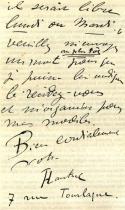 il serait libre
lundi ou Mardi
veuillez m'envoyer
au plus tôt
un mot pour que
je puisse lui indiquer
le rendez-vous
et m'organiser pour
mes modèles.
Bien cordialement
votre
7 rue Tourlaque.